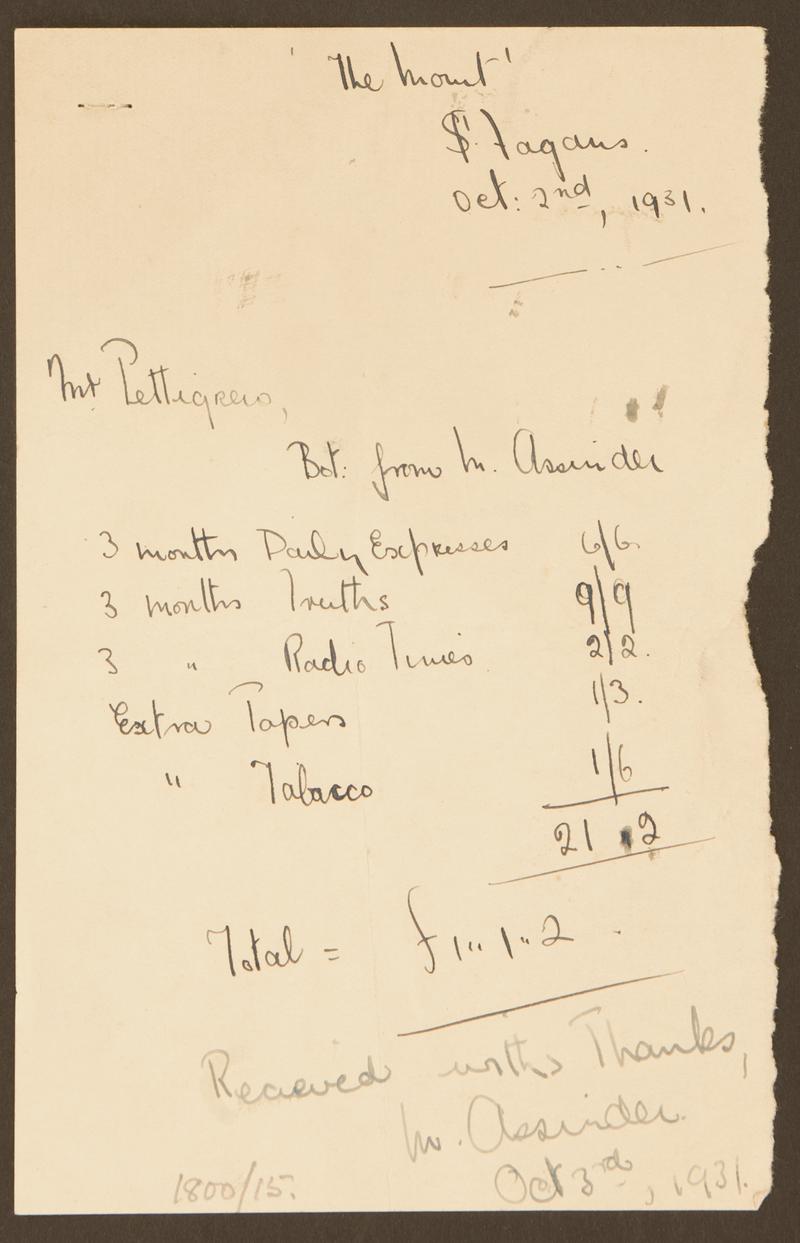 'The Mount'
St Fagans.
Oct: 2nd, 1931.
Mr Pettigrew,
Bot: from M. Assinder
3 months Daily Expresses 6/6.
3 months Truths 9/9
3 " Radio Times 2/2.
Extra Papers 1/3.
" Tabacco 1/6
21 . 2
Total = £1"1"2 .
Recieved with Thanks,
M. Assinder.
Oct 3rd, 1931.
1800/15.